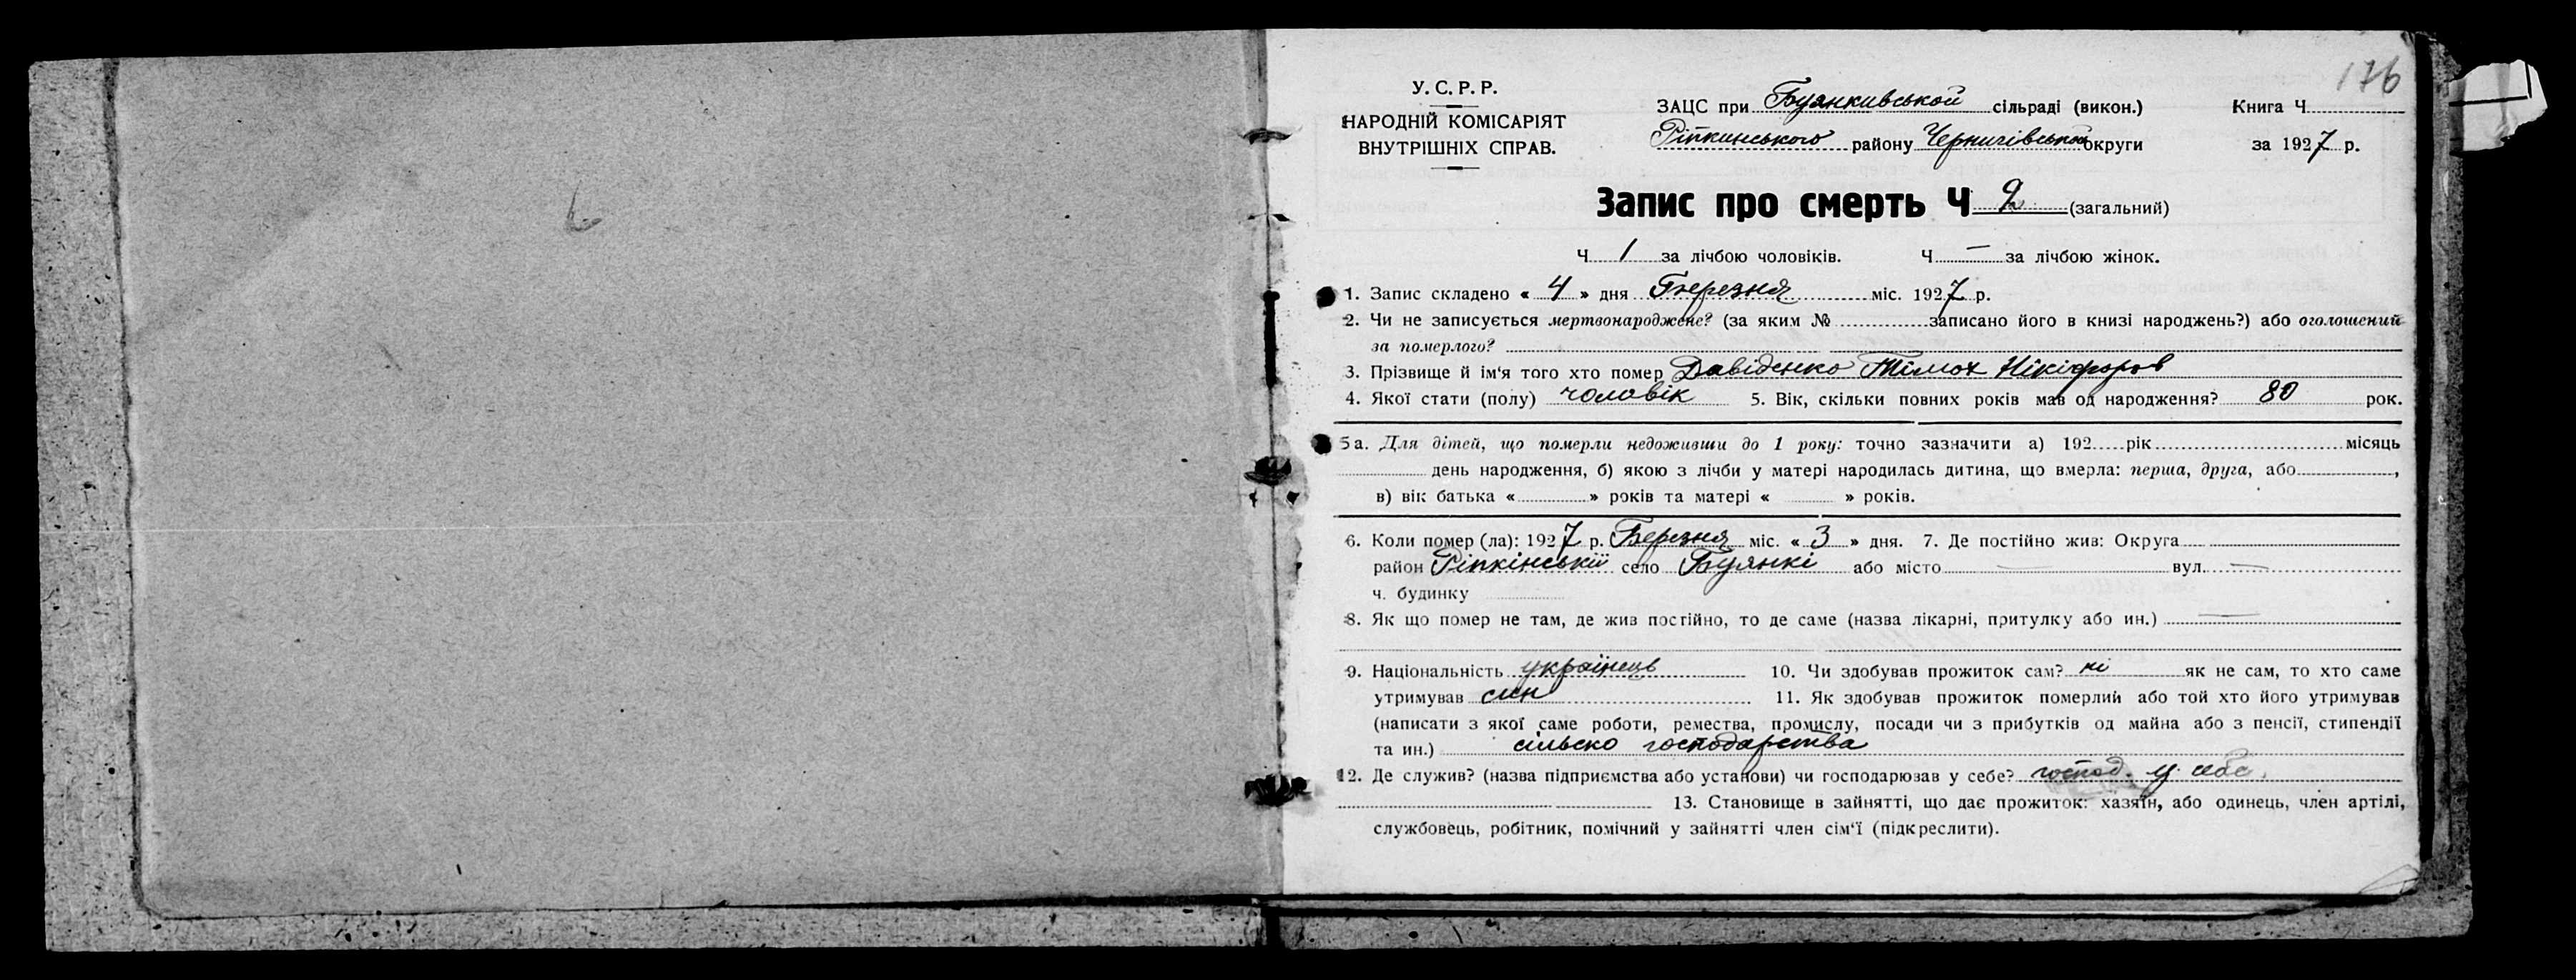 176
У. С. Р. Р.
НАРОДНІЙ КОМІСАРІЯТ
ВНУТРІШНІХ СПРАВ.
ЗАЦС при Буянкивськой сільраді (викон.) Книга Ч.
Ріпкинського району Чернигівськой округи за 1927 р.
Запис про смерть Ч 2 (загальний)
Ч 1 за лічбою чоловіків. Ч — за лічбою жінок.
1. Запис складено « 4 » дня Березня міс. 1927 р.
2. Чи не записується мертвонароджене? (за яким № записано його в книзі народжень?) або оголошений
за померлого?
3. Прізвище й ім'я того хто помер Давіденко Тімох Нікіфоров
4. Якої стати (полу) чоловік 5. Вік, скільки повних років мав од народження? 80 рок.
5а. Для дітей, що померли недоживши до 1 року: точно зазначити а) 192 рік місяць
день народження, б) якою з лічби у матері народилась дитина, що вмерла: перша, друга, або ,
в) вік батька « » років та матері « » років.
6. Коли помер (ла): 1927 р. Березня міс. « 3 » дня. 7. Де постійно жив: Округа
район Ріпкінській село Буянкі або місто — вул. —
ч. будинку
8. Як що помер не там, де жив постійно, то де саме (назва лікарні, притулку або ин.) —
9. Національність українець 10. Чи здобував прожиток сам? ні як не сам, то хто саме
утримував син 11. Як здобував прожиток померлий або той хто його утримував
(написати з якої саме роботи, ремества, промислу, посади чи з прибутків од майна або з пенсії, стипендії
та ин.) сільско господарства
12. Де служив? (назва підприємства або установи) чи господарював у себе? господ. у себе.
13. Становище в зайнятті, що дає прожиток: хазяїн, або одинець, член артілі,
службовець, робітник, помічний у зайнятті член сім'ї (підкреслити).